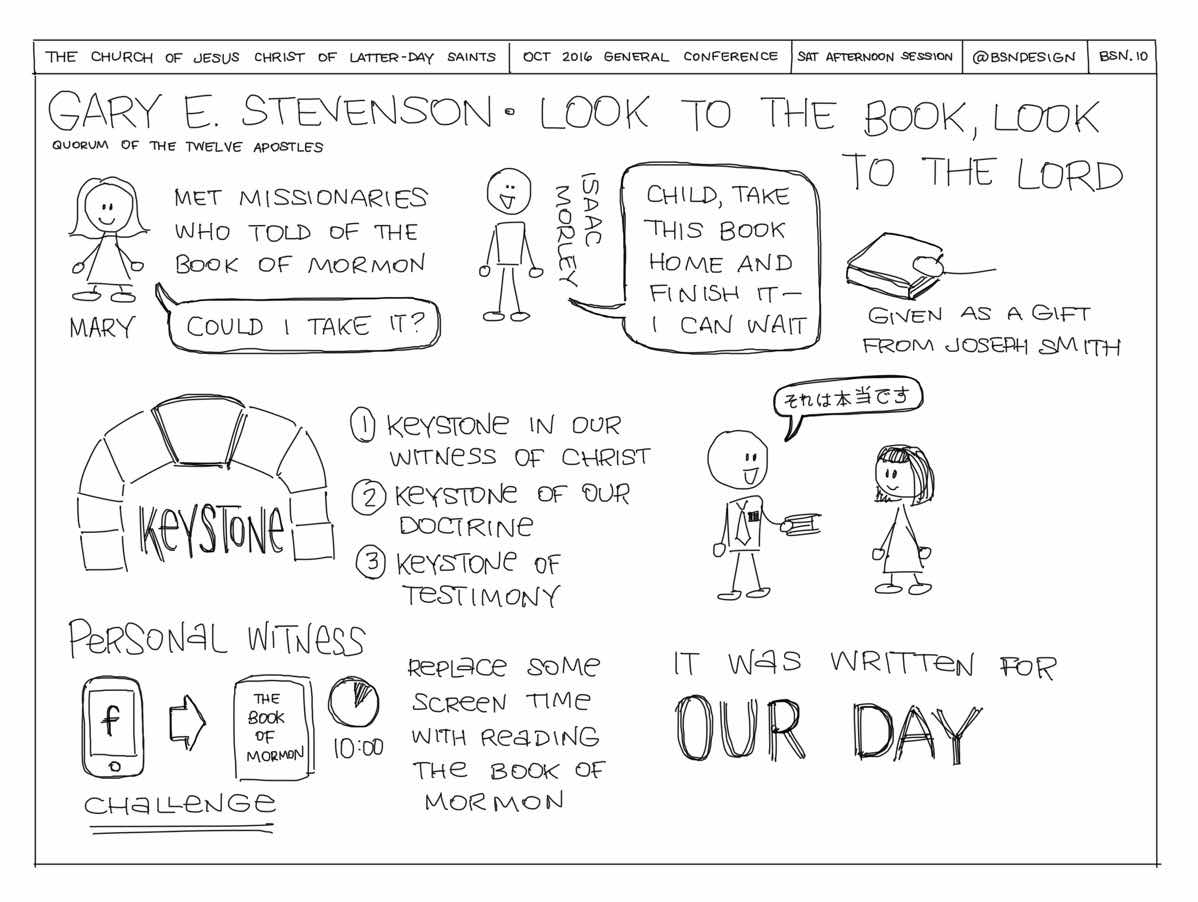 THE CHURCH OF JESUS CHRIST OF LATTER-DAY SAINTS
OCT 2016 GENERAL CONFERENCE
SAT AFTERNOON SESSION
@BSNDESIGN
BSN.10
GARY E. STEVENSON • LOOK TO THE BOOK, LOOK
TO THE LORD
QUORUM OF THE TWELVE APOSTLES
MET MISSIONARIES
WHO TOLD OF THE
BOOK OF MORMON
MARY
COULD I TAKE IT?
ISAAC
MORLEY
CHILD, TAKE
THIS BOOK
HOME AND
FINISH IT—
I CAN WAIT
GIVEN AS A GIFT
FROM JOSEPH SMITH
KEYSTONE
1 KEYSTONE IN OUR
WITNESS OF CHRIST
2 KEYSTONE OF OUR
DOCTRINE
3 KEYSTONE OF
TESTIMONY
それは本当です
PERSONAL WITNESS
f
THE
BOOK
OF
MORMON
10:00
CHALLENGE
REPLACE SOME
SCREEN TIME
WITH READING
THE BOOK OF
MORMON
IT WAS WRITTEN FOR
OUR DAY